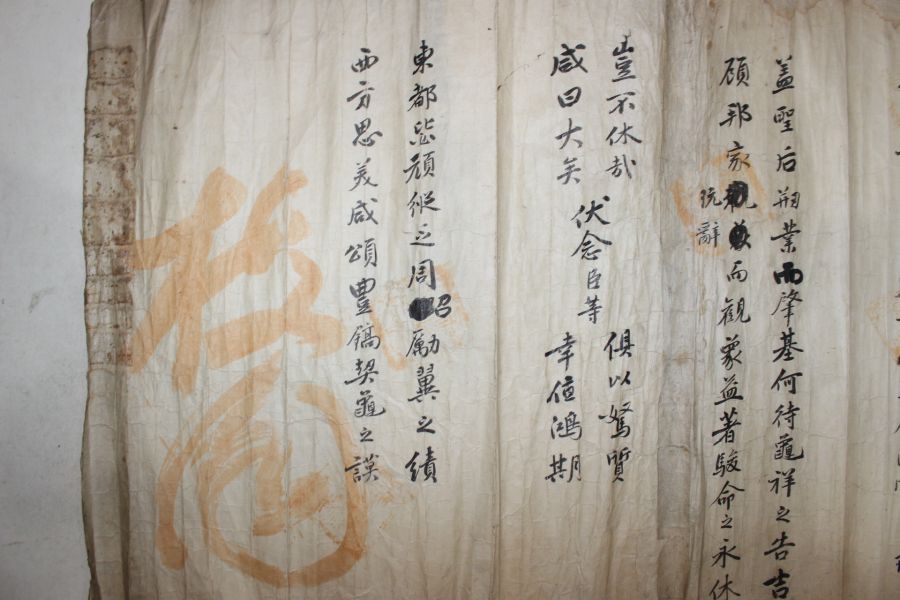 盖聖后刱業而肇基何待龜祥之告吉
顧邦家玩辭而觀象益著駿命之永休
豈不休哉
咸曰大矣
伏念臣等
俱以駑質
幸値鴻期
東都願縱乏周昭勵翼之績
西方思美咸頌豊鎬契龜之謨